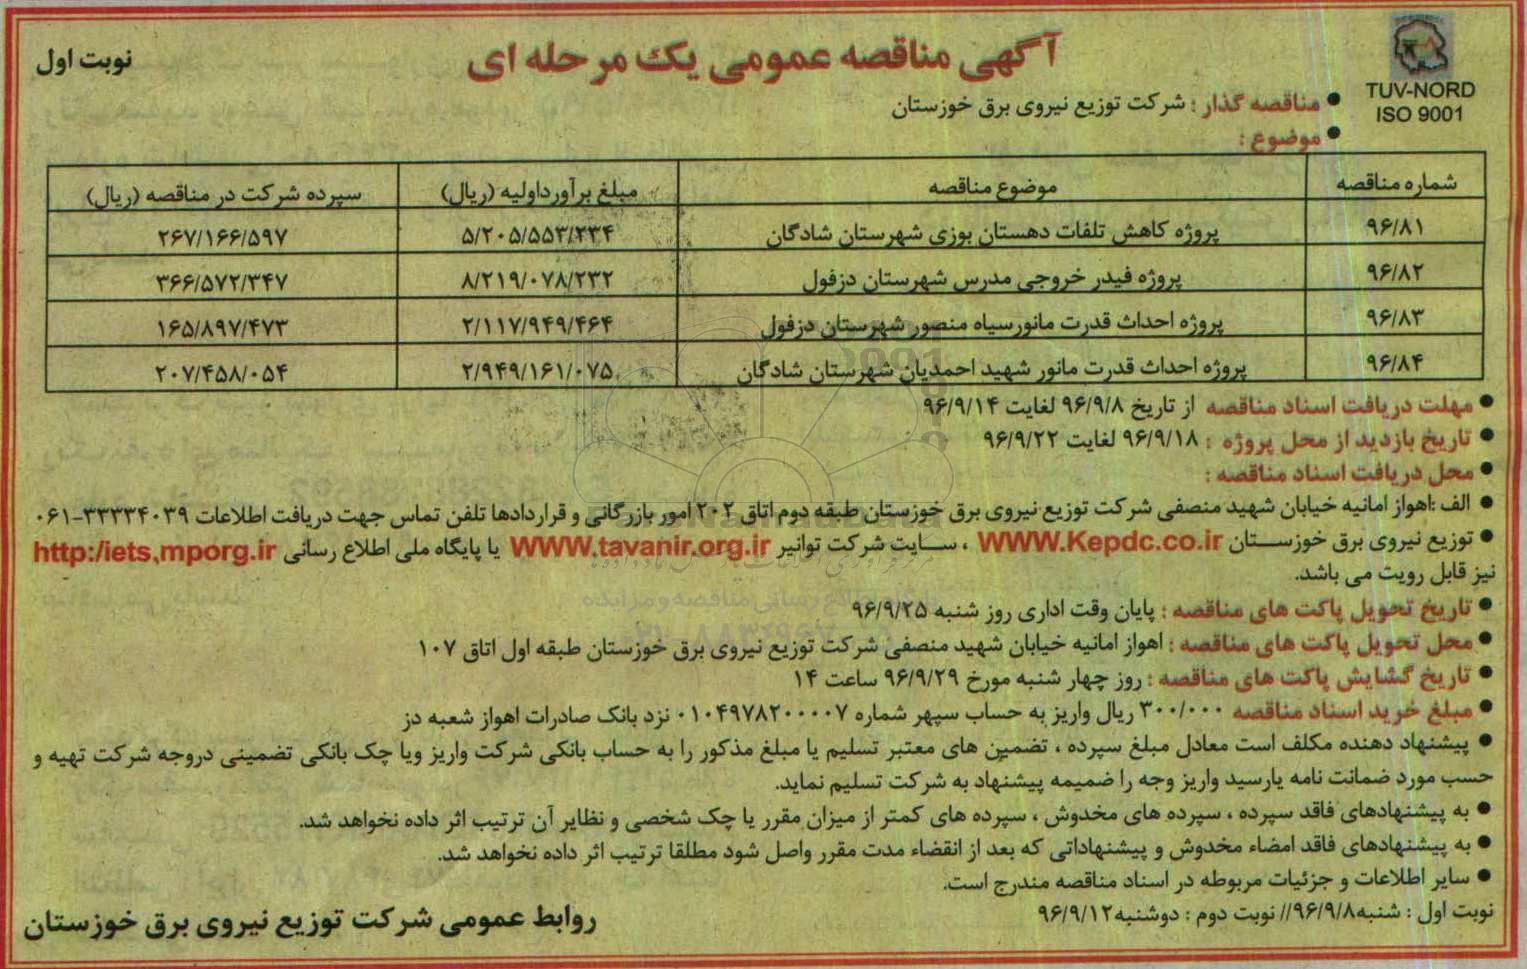 آگهی مناقصه عمومی یک مرحله ای
نوبت اول
TUV-NORD
ISO 9001
● مناقصه گذار : شرکت توزیع نیروی برق خوزستان
● موضوع :
شماره مناقصه | موضوع مناقصه | مبلغ برآورداولیه (ریال) | سپرده شرکت در مناقصه (ریال)
۹۶/۸۱ | پروژه کاهش تلفات دهستان بوزی شهرستان شادگان | ۵/۲۰۵/۵۵۳/۲۳۴ | ۲۶۷/۱۶۶/۵۹۷
۹۶/۸۲ | پروژه فیدر خروجی مدرس شهرستان دزفول | ۸/۲۱۹/۰۷۸/۲۳۲ | ۳۶۶/۵۷۲/۳۴۷
۹۶/۸۳ | پروژه احداث قدرت مانورسیاه منصور شهرستان دزفول | ۲/۱۱۷/۹۴۹/۴۶۴ | ۱۶۵/۸۹۷/۴۷۳
۹۶/۸۴ | پروژه احداث قدرت مانور شهید احمدیان شهرستان شادگان | ۲/۹۴۹/۱۶۱/۰۷۵ | ۲۰۷/۴۵۸/۰۵۴
● مهلت دریافت اسناد مناقصه از تاریخ ۹۶/۹/۸ لغایت ۹۶/۹/۱۴
● تاریخ بازدید از محل پروژه : ۹۶/۹/۱۸ لغایت ۹۶/۹/۲۲
● محل دریافت اسناد مناقصه :
● الف :اهواز امانیه خیابان شهید منصفی شرکت توزیع نیروی برق خوزستان طبقه دوم اتاق ۲۰۲ امور بازرگانی و قراردادها تلفن تماس جهت دریافت اطلاعات ۳۳۳۳۴۰۳۹-۰۶۱
● توزیع نیروی برق خوزستان WWW.Kepdc.co.ir ، سایت شرکت توانیر WWW.tavanir.org.ir یا پایگاه ملی اطلاع رسانی http:/iets,mporg.ir
نیز قابل رویت می باشد.
● تاریخ تحویل پاکت های مناقصه : پایان وقت اداری روز شنبه ۹۶/۹/۲۵
● محل تحویل پاکت های مناقصه : اهواز امانیه خیابان شهید منصفی شرکت توزیع نیروی برق خوزستان طبقه اول اتاق ۱۰۷
● تاریخ گشایش پاکت های مناقصه : روز چهار شنبه مورخ ۹۶/۹/۲۹ ساعت ۱۴
● مبلغ خرید اسناد مناقصه ۳۰۰/۰۰۰ ریال واریز به حساب سپهر شماره ۰۱۰۴۹۷۸۲۰۰۰۰۷ نزد بانک صادرات اهواز شعبه دز
● پیشنهاد دهنده مکلف است معادل مبلغ سپرده ، تضمین های معتبر تسلیم یا مبلغ مذکور را به حساب بانکی شرکت واریز ویا چک بانکی تضمینی دروجه شرکت تهیه و
حسب مورد ضمانت نامه یارسید واریز وجه را ضمیمه پیشنهاد به شرکت تسلیم نماید.
● به پیشنهادهای فاقد سپرده ، سپرده های مخدوش ، سپرده های کمتر از میزان مقرر یا چک شخصی و نظایر آن ترتیب اثر داده نخواهد شد.
● به پیشنهادهای فاقد امضاء مخدوش و پیشنهاداتی که بعد از انقضاء مدت مقرر واصل شود مطلقا ترتیب اثر داده نخواهد شد.
● سایر اطلاعات و جزئیات مربوطه در اسناد مناقصه مندرج است.
نوبت اول : شنبه۹۶/۹/۸// نوبت دوم : دوشنبه۹۶/۹/۱۲
روابط عمومی شرکت توزیع نیروی برق خوزستان